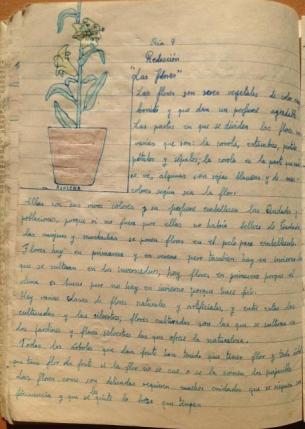 Día 9
Redacción
"Las flores"
Las flores son seres vegetales de color
bonito y que dan un perfume agradable
Las partes en que se dividen las flores
varias que son: la corola, estambres,
pétalos y sépalos; la corola es la parte que
se ve, algunas son rojas blancas y de mas
colores según sea la flor.
Ellas con sus vivos colores y su perfume embellecen las ciudades y
poblaciones, porque si no fuera por ellas no habría belleza de ciudades,
las mujeres y muchachas se ponen flores en el pelo para embellecerse.
Flores hay en primavera y en verano pero también hay en invierno
que se cultivan en los invernaderos, hay flores en primavera porque el
clima es bueno pero no hay en invierno porque hace frío.
Hay varias clases de flores naturales y artificiales, y entre estas las
cultivadas y las silvestres, flores cultivadas son las que se cultivan en
los jardines y flores silvestres las que ofrece la naturaleza.
Todos los árboles que dan fruto han tenido que tener flor y toda
que tiene flor da fruto si la flor no se cae o se la comen los
Las flores como son delicadas requieren muchos cuidados que se rieguen con
frecuencia y que se les quite la hoja que tengan